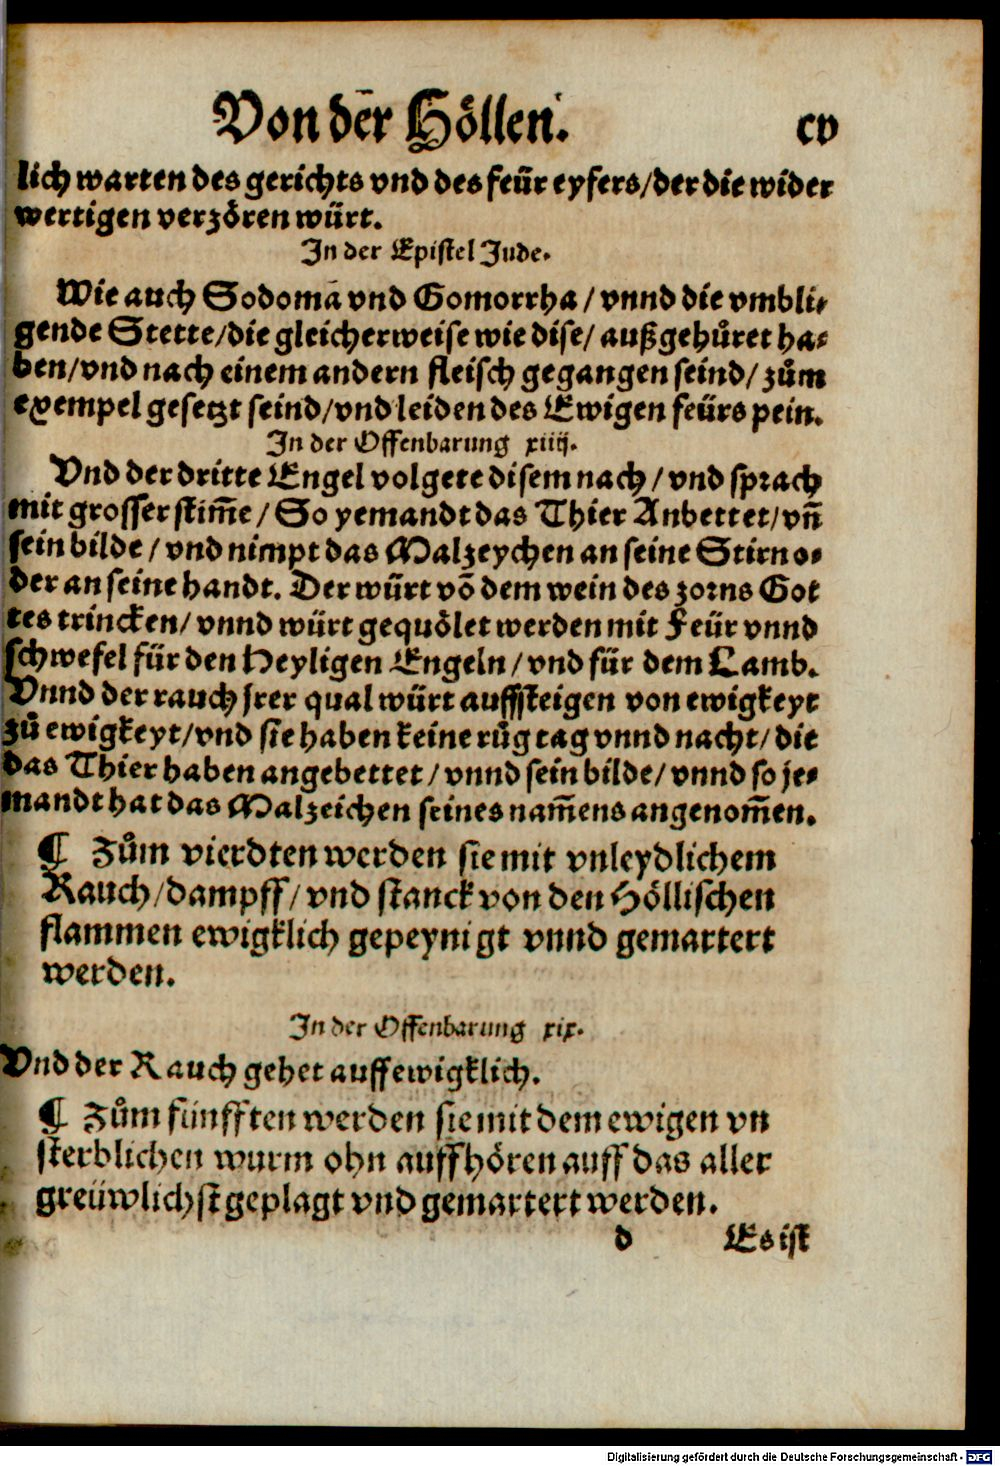 Von der Höllen.
cv
lich warten des gerichts vnd des feür eyfers/der die wider
wertigen verzören würt.
In der Epistel Jude.
Wie auch Sodomā vnd Gomorrha/vnnd die vmbli⸗
gende Stette/die gleicherweise wie dise/außgehůret ha⸗
ben/vnd nach einem andern fleisch gegangen seind/zům
exempel gesetzt seind/vnd leiden des Ewigen feürs pein.
In der Offenbarung xiiij.
Vnd der dritte Engel volgete disem nach/vnd sprach
mit grosser stim̄e/So yemandt das Thier Anbettet/vñ
sein bilde/vnd nimpt das Malzeychen an seine Stirn o⸗
der an seine handt. Der würt võ dem wein des zorns Got
tes trincken/vnnd würt gequölet werden mit Feür vnnd
schwefel für den Heyligen Engeln/vnd für dem Lamb.
Vnnd der rauch jrer qual würt auffsteigen von ewigkeyt
zů ewigkeyt/vnd sie haben keine růg tag vnnd nacht/die
das Thier haben angebettet/vnnd sein bilde/vnnd so je⸗
mandt hat das Malzeichen seines nam̄ens angenom̄en.
¶ Zům vierdten werden sie mit vnleydlichem
Rauch/dampff/vnd stanck von den Höllischen
flammen ewigklich gepeynigt vnnd gemartert
werden.
In der Offenbarung xix.
Vnd der Rauch gehet auff ewigklich.
¶ Zům fünfften werden sie mit dem ewigen vn
sterblichen wurm ohn auffhören auff das aller
greüwlichst geplagt vnd gemartert werden.
d Es ist
Digitalisierung gefördert durch die Deutsche Forschungsgemeinschaft - DFG